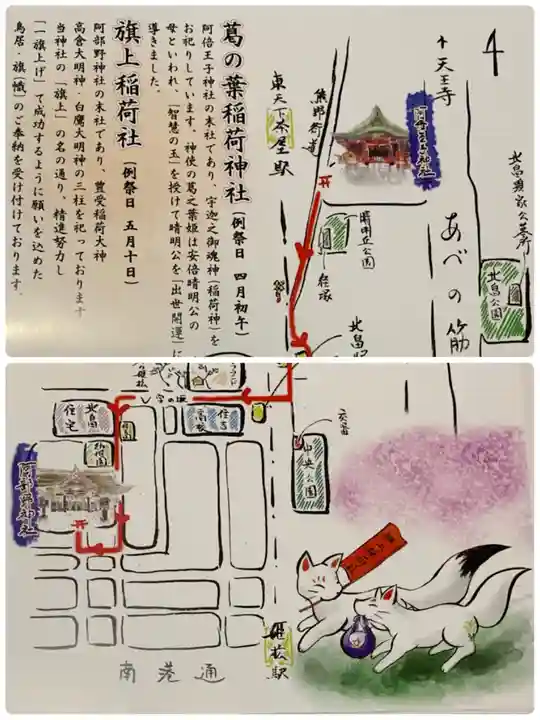 葛の葉稲荷神社（例祭日 四月初午）
阿倍王子神社の末社であり、宇迦之御魂神（稲荷神）を
お祀りしています。神使の葛之葉姫は安倍晴明公の
母といわれ、「智慧の玉」を授けて晴明公を「出世開運」に
導きました。
旗上稲荷社（例祭日 五月十日）
阿部野神社の末社であり、豊受稲荷大神
高倉大明神・白鷹大明神の三柱を祀っております
当神社の「旗上」の名の通り、精進努力し
「一旗上げ」て成功するように願いを込めた
鳥居・旗（幟）のご奉納を受け付けております。
天王寺
北畠顕家公墓所
阿倍王子神社
熊野街道
東天下茶屋駅
晴明丘公園
経塚
あべの筋
北畠公園
北畠
字の坂
北畠
住宅
住吉
高校
交番
中央公園
阿部野神社
姫松駅
南港通